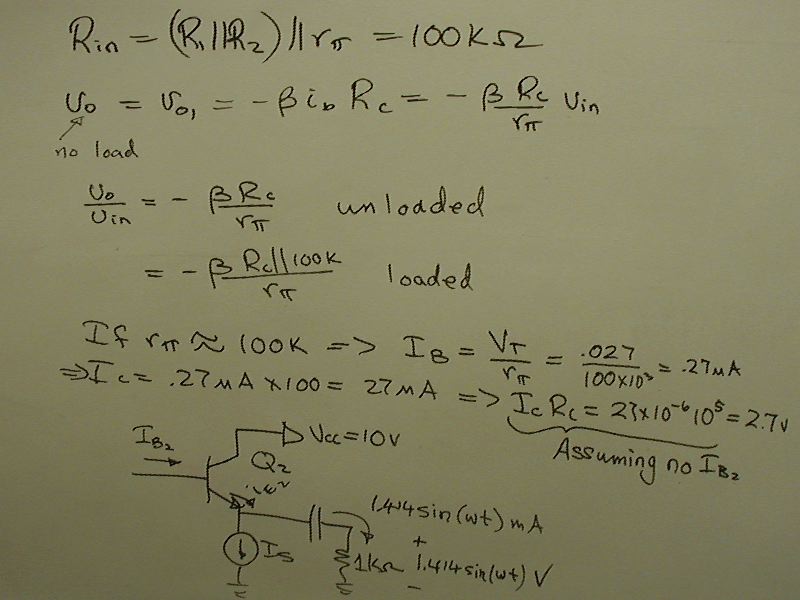 Rin = (R1||R2)||rπ = 100KΩ
vo = vo1 = -β ib Rc = - β Rc/rπ vin
no load
vo/vin = - β Rc/rπ unloaded
= - β Rc||100K/rπ loaded
If rπ ≈ 100K => IB = VT/rπ = .027/100×10³ = .27μA
=> Ic = .27μA × 100 = 27μA => Ic Rc = 27×10⁻⁶ 10⁵ = 2.7v
Assuming no IB2
IB2
Vcc = 10V
Q2
1.414 sin(wt) mA
Is
+
1KΩ
1.414 sin(wt) V
-